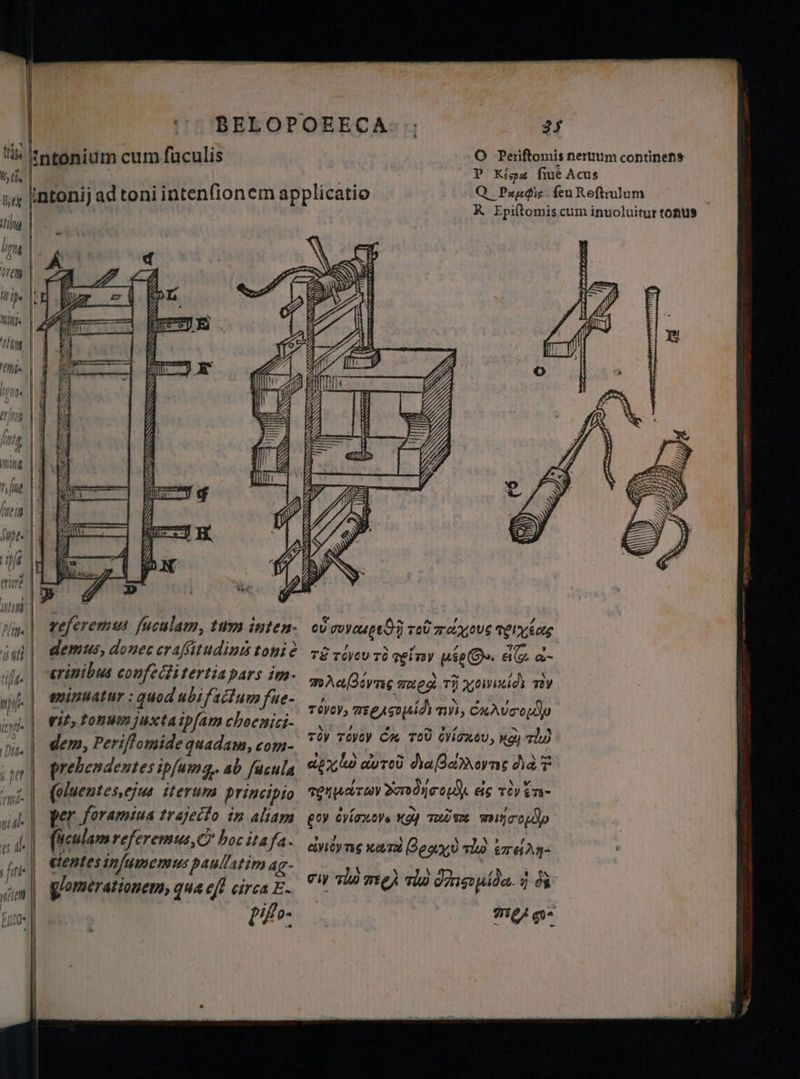 BELOPOEECA. 35
Entonium cum fuculis
Entonij ad toni intenfionem applicatio
O Periftomis neruum continens
P Κίρρα fiue Acus
Q Ραμφὶς feu Roftrulum
R Epiftomis cum inuoluitur tonus
A
E
R
O
P
N
D
referemus fuculam, tum inten-
demus, donec craffitudinis toni è
crinibus confecti tertia pars im-
minuatur : quod ubi factum fue-
rit, tonum juxta ipfam choenici-
dem, Periftomide quadam, com-
prehendentes ipfumq. ab fucula
foluentes, ejus iterum principio
per foramina trajecto in aliam
fuculam referemus, & hoc ita fa-
cientes infumemus paullatim ag-
glomerationem, qua eft circa E-
pifto-
οὗ συναιρεθῇ τοῦ πάχους τριχέας
τοῦ τόνου τὸ τρίτον μέρος. εἶτα ἀ-
πολαβόντες παρὰ τῇ χοινικίδι τὸν
τόνον, περιστομίδι τινὶ, ἐκλύσομεν
τὸν τόνον ἐκ τοῦ ὀνίσκου, καὶ τὴν
ἀρχὴν αὐτοῦ διαβάλλοντες διὰ τ
τρημάτων ἀποδήσομεν εἰς τὸν ἕτε-
ρον ὀνίσκον. καὶ ταῦτα ποιήσομεν
ἀνιόντες κατὰ βραχὺ τὴν ἐπείλη-
σιν τὴν περὶ τὴν ἐπιστομίδα. ἡ δὲ